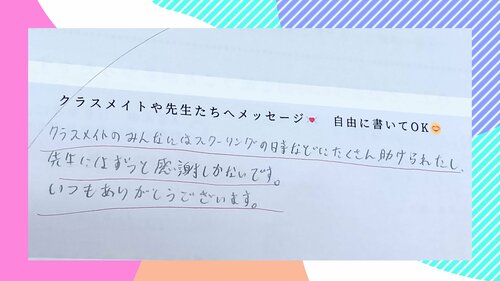 クラスメイトや先生たちへメッセージ💗 自由に書いてOK😊
クラスメイトのみんなにはスクーリングの日などにたくさん助けられたし、
先生にはずっと感謝しかないです。
いつもありがとうございます。